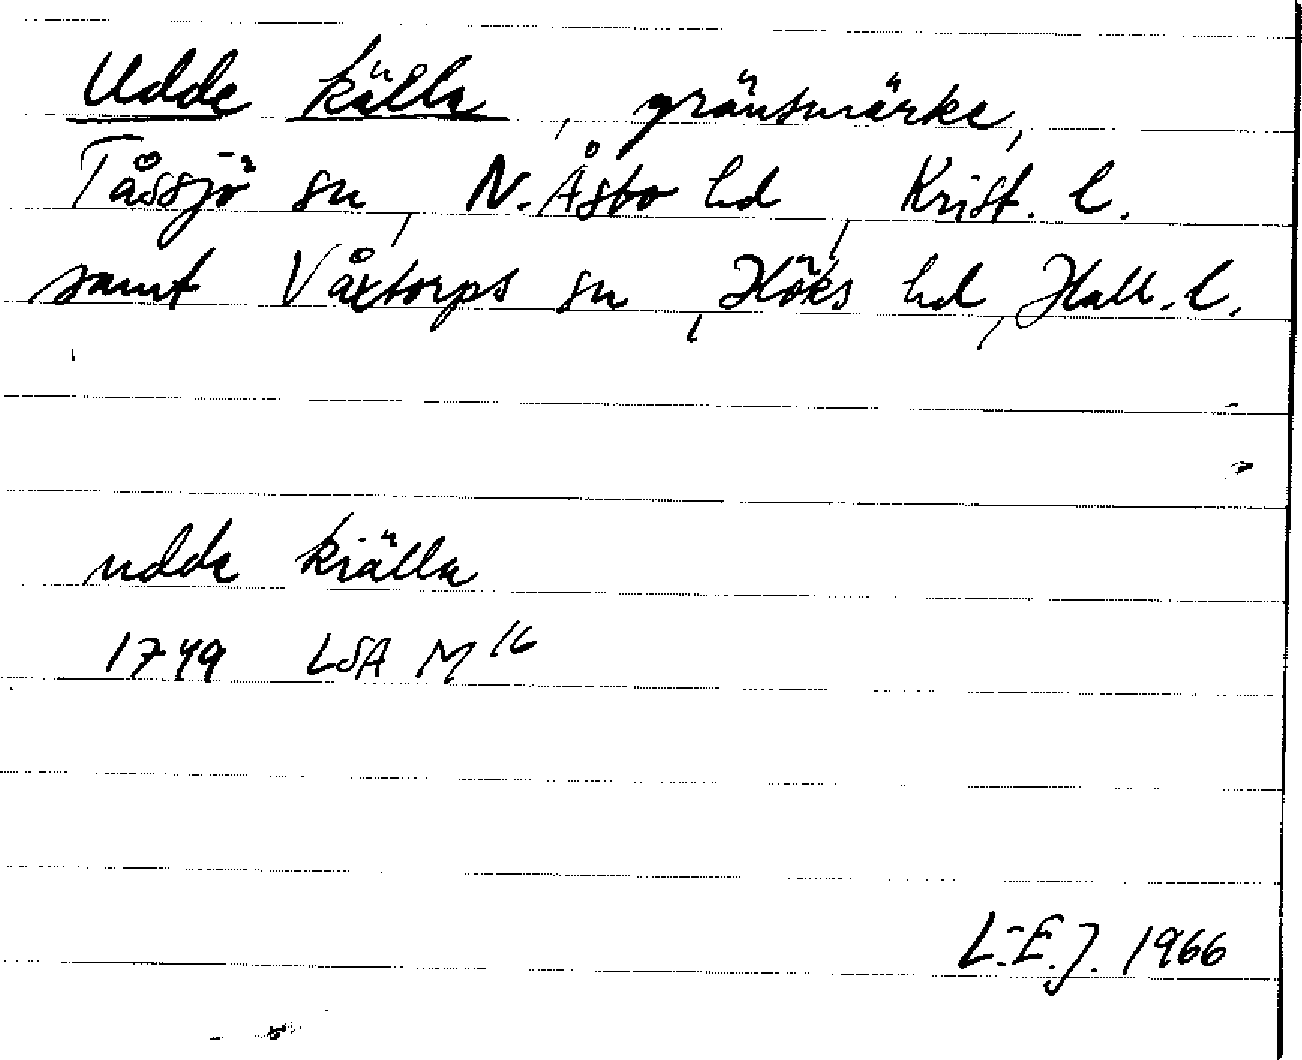 Udde källa, gränsmärke,
Tåssjö sn, N. Åsbo hd, Krist. l.
samt Våxtorps sn, Höks hd, Hall. l.
udde kiälla
1749 LSA M 16
L-E.J. 1966